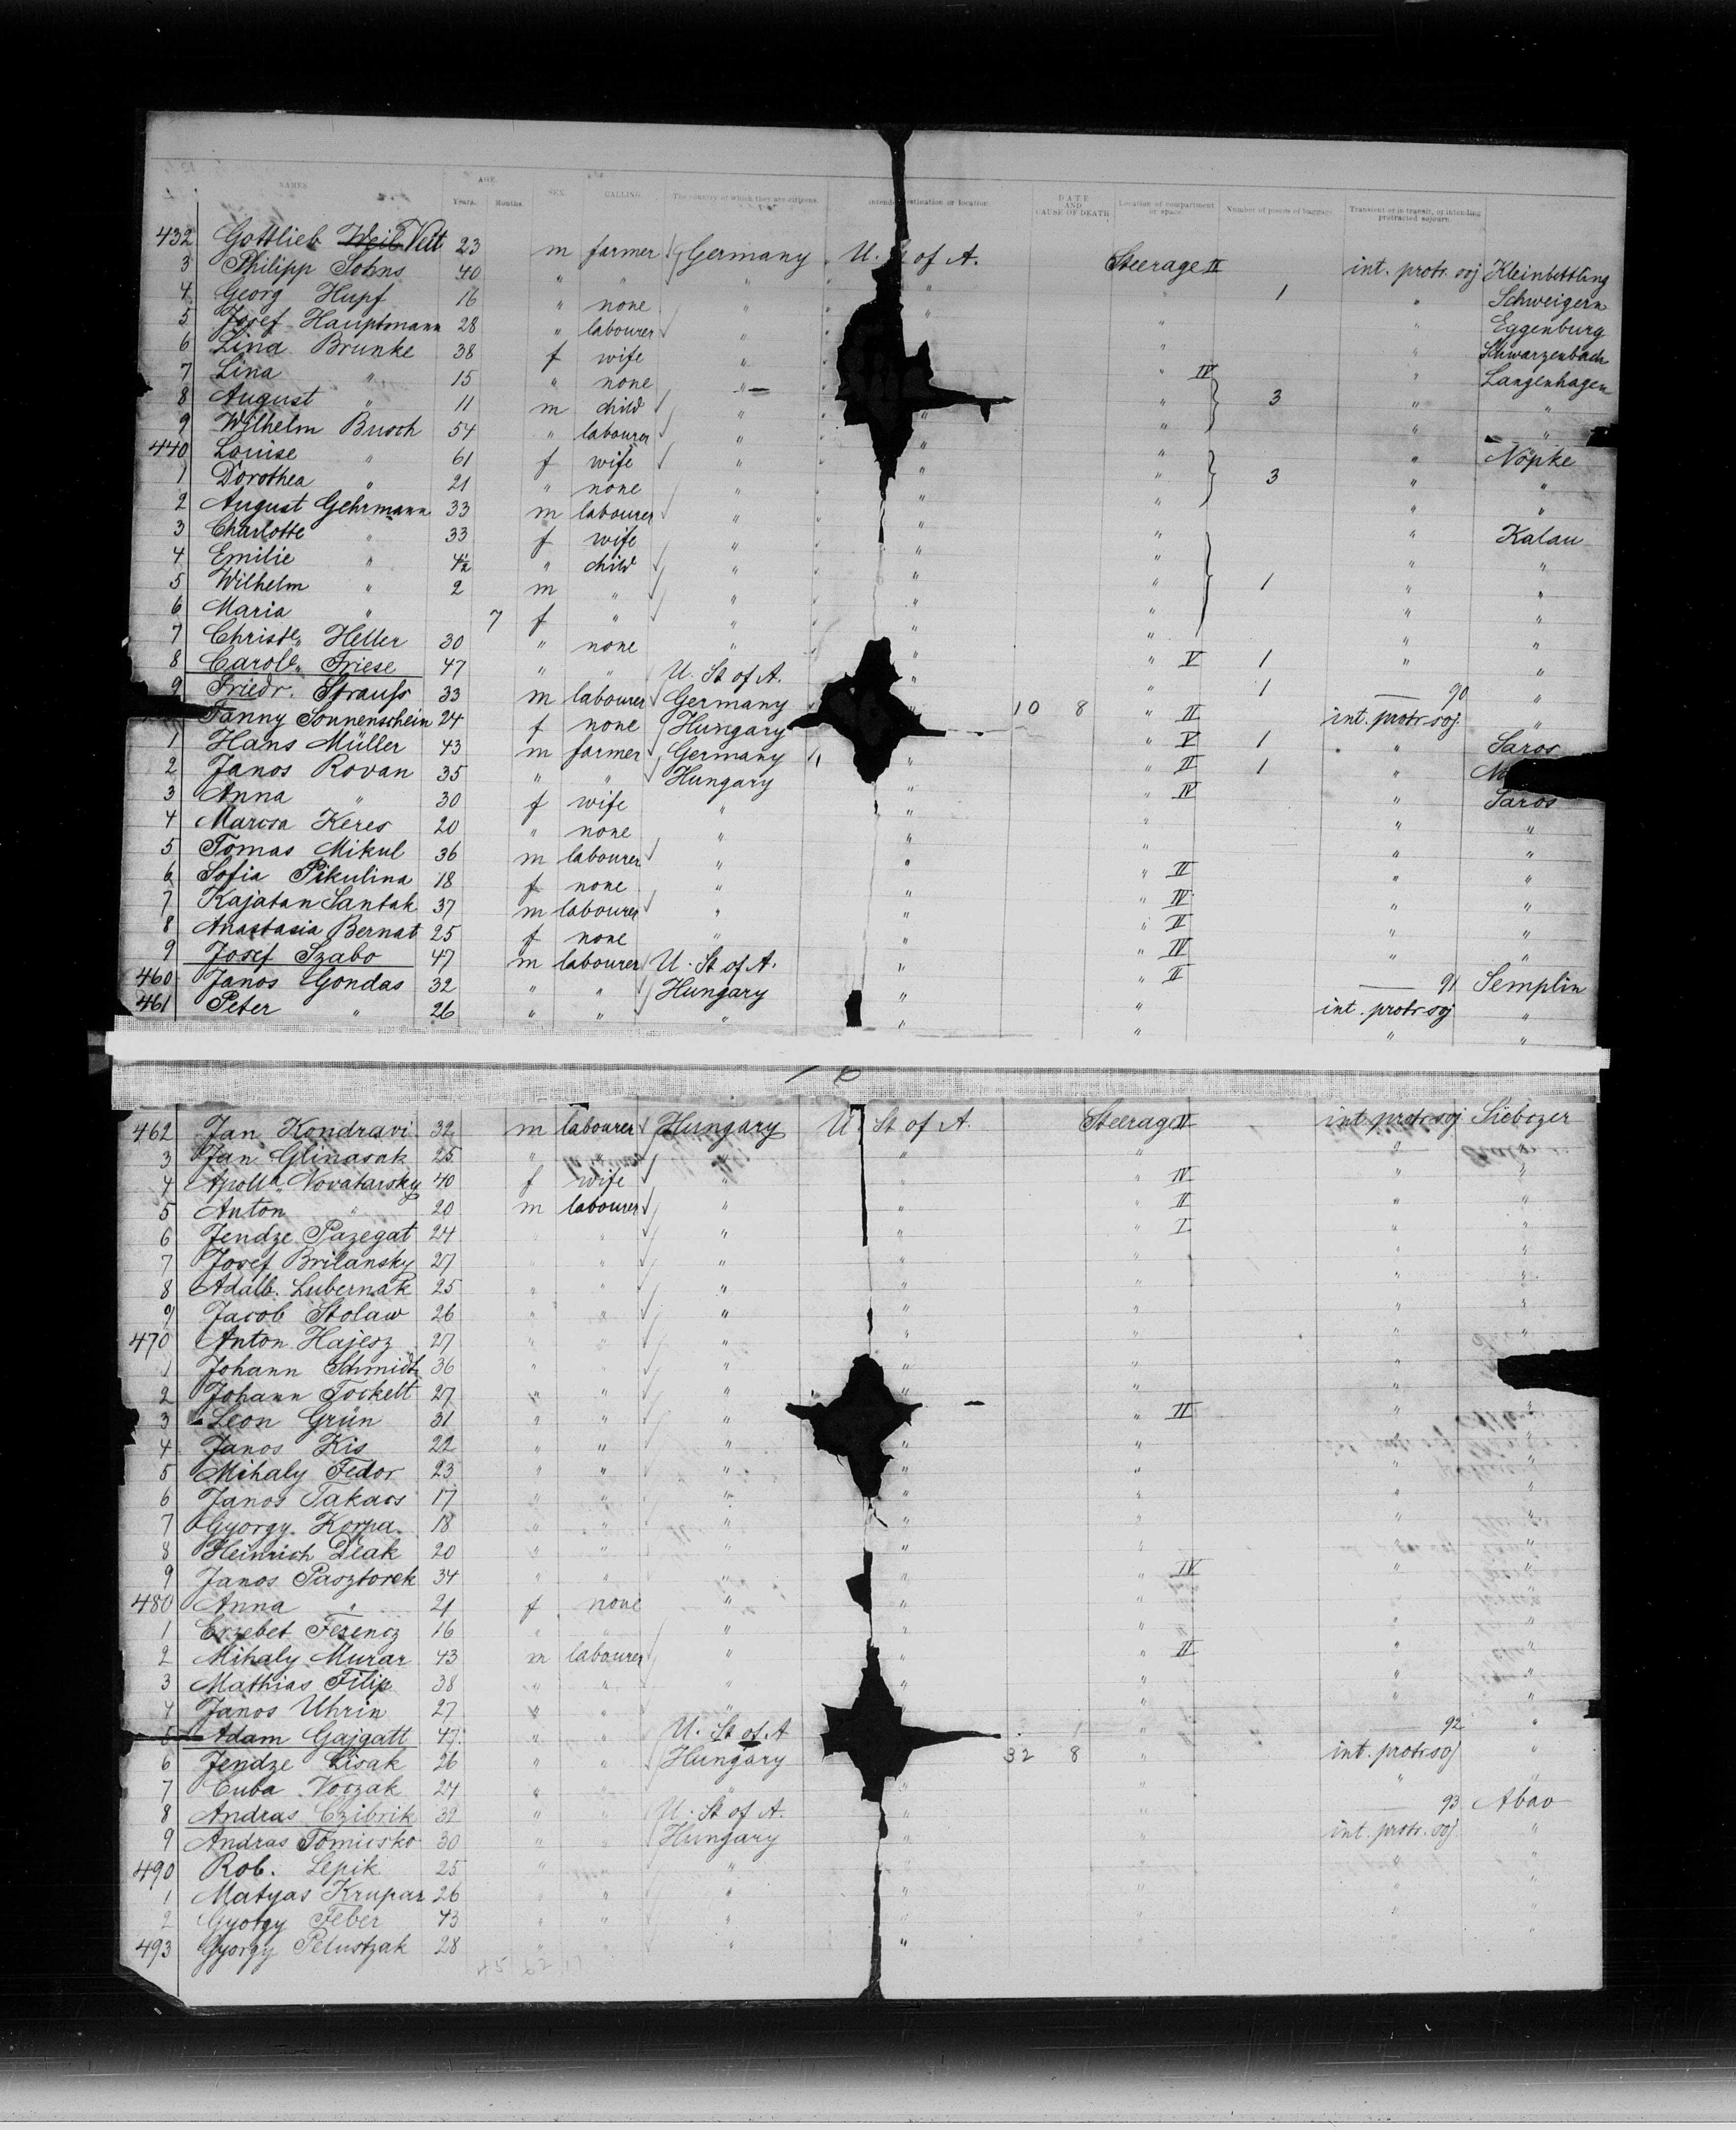 NAMES. AGE. Years. Months. SEX. CALLING. The country of which they are citizens. Intended destination or location. DATE AND CAUSE OF DEATH Location of compartment or space. Number of pieces of baggage. Transient or in transit, or intending protracted sojourn.
432 Gottlieb Weib Veit 23 m farmer Germany U. St of A. Steerage II int. protr. soj Kleinbettling
3 Philipp Sohns 40 " " " " " 1 " Schweigern
4 Georg Hupf 16 " none " " " " Eggenburg
5 Josef Hauptmann 28 " labourer " " " Schwarzenbach
6 Lina Brunke 38 f wife " " IV " Langenhagen
7 Lina " 15 " none " " " 3 " "
8 August " 11 m child " " " " "
9 Wilhelm Busch 54 " labourer " " " " Nöpke
440 Louise " 61 f wife " " " 3 " "
1 Dorothea " 21 " none " " " " "
2 August Gehrmann 33 m labourer " " " " Kalau
3 Charlotte " 33 f wife " " " " "
4 Emilie " 4½ " child " " " 1 " "
5 Wilhelm " 2 m " " " " " "
6 Maria " 7 f " " " " " "
7 Christe. Heller 30 " none " " " V 1 " "
8 Carole. Friese 47 " " U. St of A. " " 1 90 "
9 Friedr. Strauss 33 m labourer Germany " 10 8 " II int. protr soj. "
Fanny Sonnenschein 24 f none Hungary " V 1 " Saros
1 Hans Müller 43 m farmer Germany " " II 1 " M
2 Janos Rovan 35 " " Hungary " " IV " Saros
3 Anna " 30 f wife " " " " "
4 Marcsa Keres 20 " none " " " " "
5 Tomas Mikul 36 m labourer " " " II " "
6 Sofia Pikulina 18 f none " " " IV " "
7 Kajatan Santak 37 m labourer " " " II " "
8 Anastasia Bernat 25 f none " " " IV " "
9 Josef Szabo 47 m labourer U. St of A. " " II 91 Semplin
460 Janos Gondas 32 " " Hungary " " int. protr soj "
461 Peter " 26 " " " " " " "
462 Jan Kondravi 32 m labourer Hungary U St of A. Steerage II int. protr soj Siebozer
3 Jan Glinasak 25 " " " " " " "
4 Apolla. Novatarsky 40 f wife " " " IV " "
5 Anton " 20 m labourer " " " II " "
6 Jendze Pazegat 24 " " " " " I " "
7 Josef Brilansky 27 " " " " " " "
8 Adalb. Lubernak 25 " " " " " " "
9 Jacob Stolaw 26 " " " " " " "
470 Anton Hajesz 27 " " " " " " "
1 Johann Schmidt 36 " " " " " "
2 Johann Tockelt 27 " " " " " "
3 Leon Grün 31 " " " " " II " "
4 Janos Kis 22 " " " " " " "
5 Mihaly Fedor 23 " " " " " " "
6 Janos Takacs 17 " " " " " " "
7 Gyorgy Korpa 18 " " " " " " "
8 Heinrich Deak 20 " " " " " " "
9 Janos Pasztorek 34 " " " " " IV " "
480 Anna " 21 f none " " " " "
1 Erzebet Ferencz 16 " " " " " " "
2 Mihaly Murar 43 m labourer " " " II " "
3 Mathias Filip 38 " " " " " " "
4 Janos Uhrin 27 " " " " " "
5 Adam Gajgatt 47 " " U. St of A " 92 "
6 Jendze Lisak 26 " " Hungary 32 8 " int. protr soj "
7 Cuba Voczak 24 " " " " " " "
8 Andras Czibrik 39 " " U. St of A. " " 93 Abao
9 Andras Tomicsko 30 " " Hungary " " int. protr. soj "
490 Rob. Lepik 25 " " " " " "
1 Matyas Krupar 26 " " " " " " "
2 Gyorgy Feber 43 " " " " " " "
493 Gyorgy Pelustzak 28 " " " " "